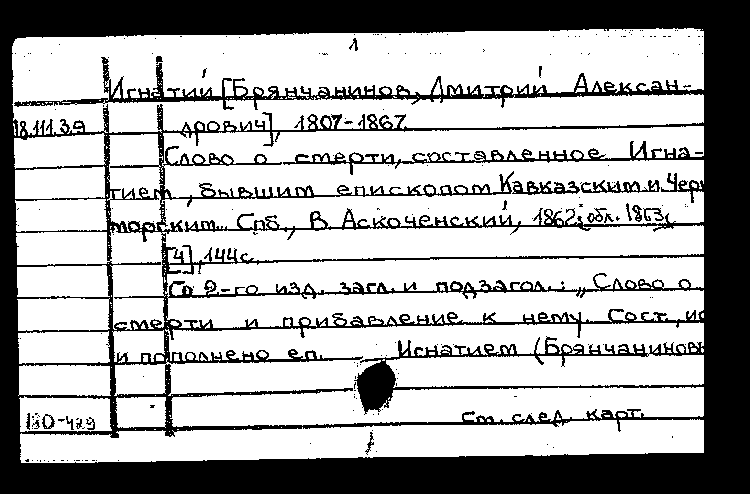 1
Игнатий [Брянчанинов, Дмитрий Алексан-
18.111.3.9 дрович], 1807-1867.
Слово о смерти, составленное Игна-
тием, бывшим епископом Кавказским и Чер
морским. Спб., В. Аскоченский, 1862; обл. 1863.
[4], 144 с.
Со 2-го изд. загл. и подзагол.: „Слово о
смерти и прибавление к нему. Сост., ис
и пополнено еп. Игнатием (Брянчанинов
180-429 См. след. карт.